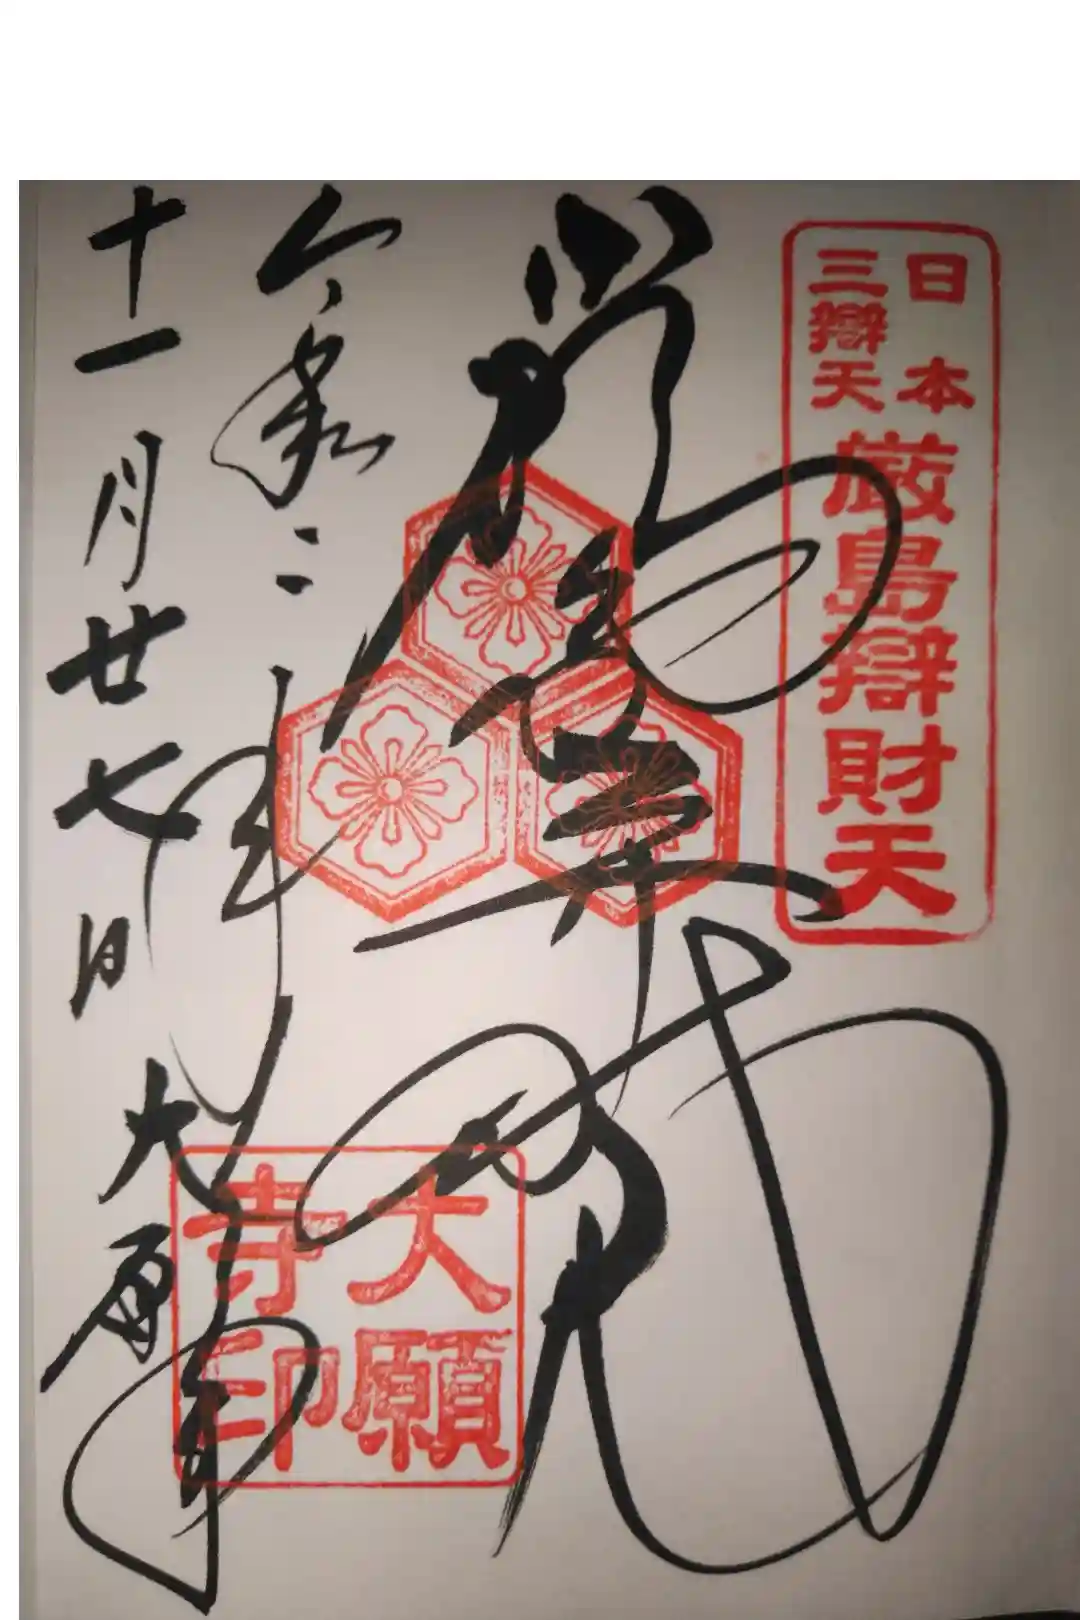 日本
三辯天
厳島辯財天
令和二年
十一月廿七日
大願寺
大願
寺印